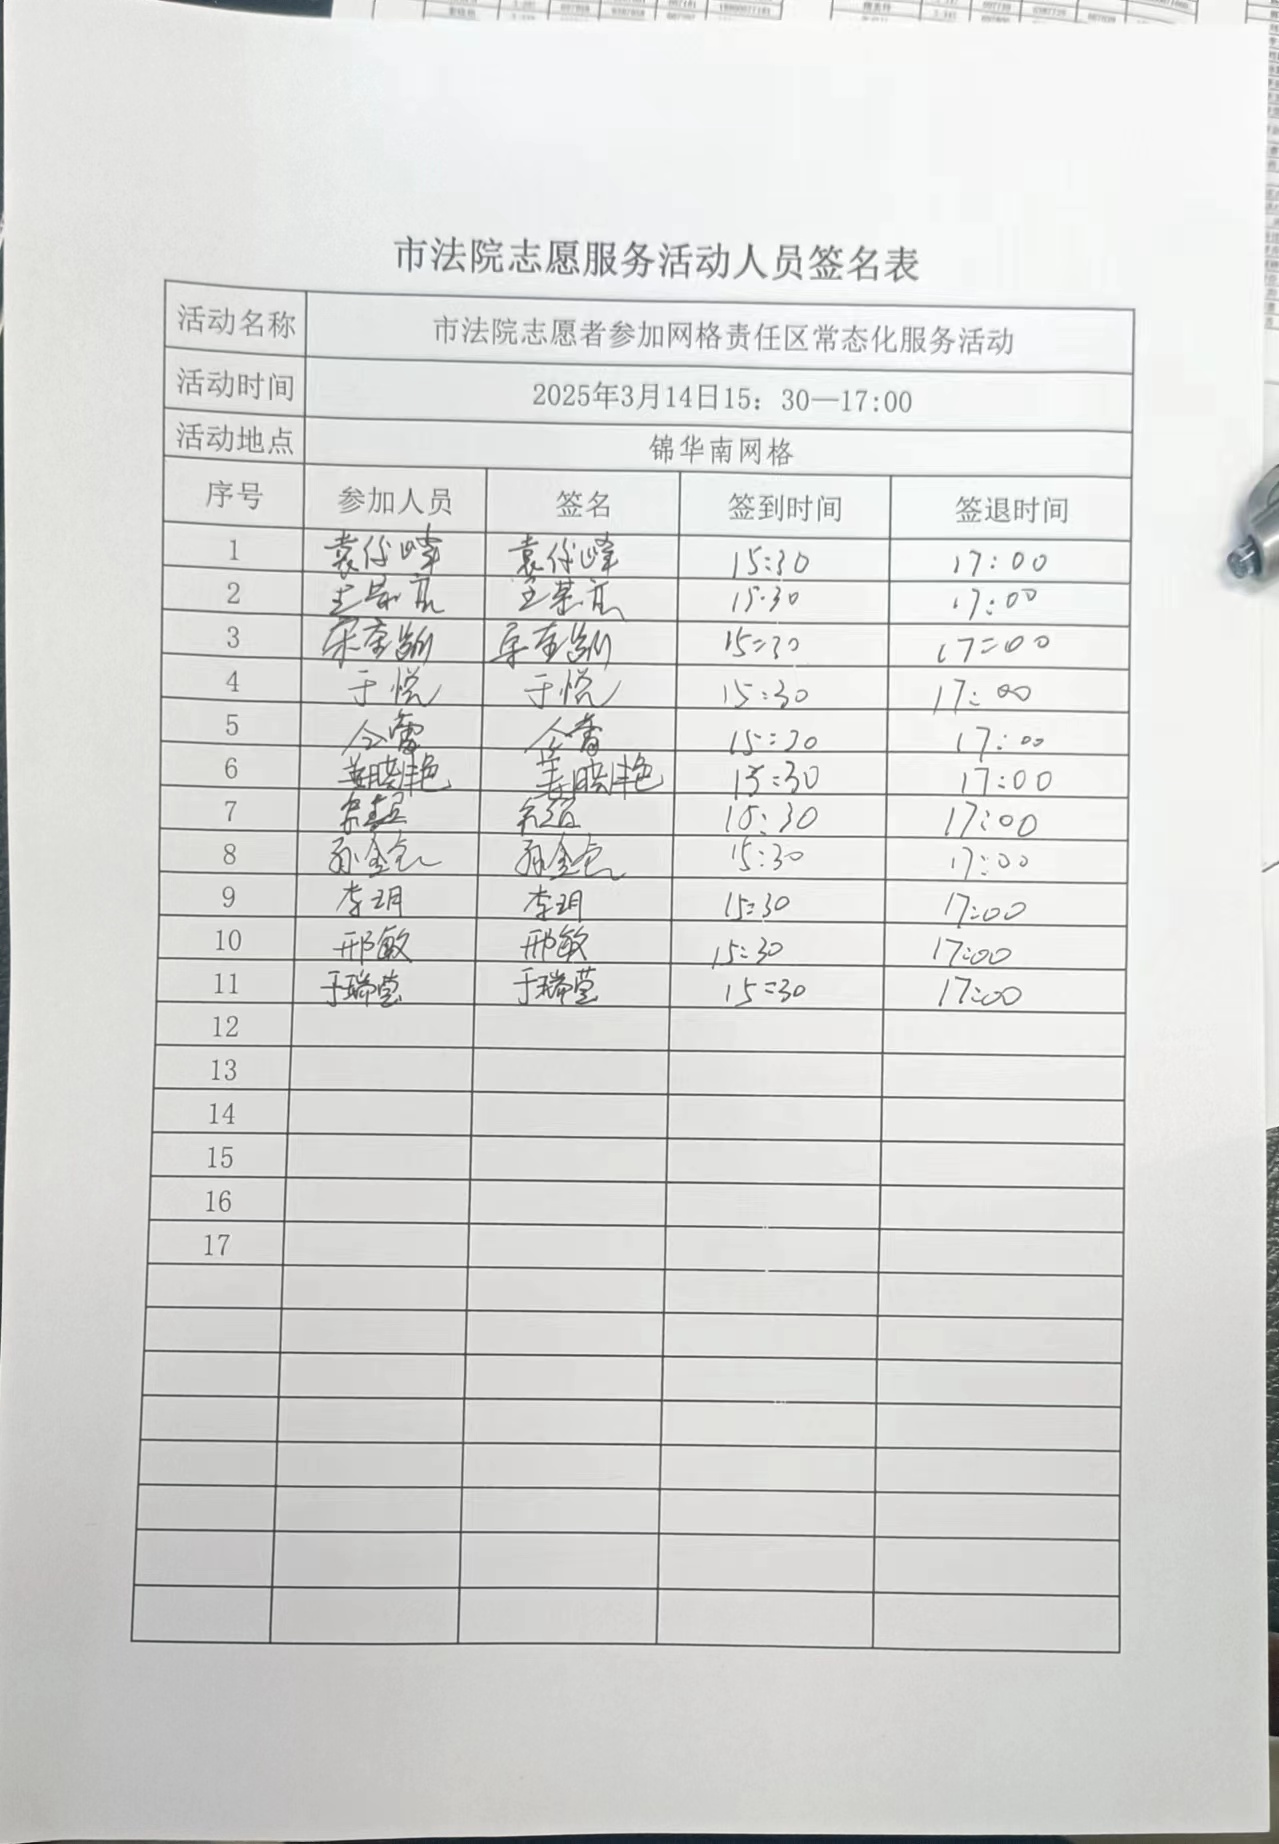 市法院志愿服务活动人员签名表
活动名称 市法院志愿者参加网格责任区常态化服务活动
活动时间 2025年3月14日15：30—17:00
活动地点 锦华南网格
序号 参加人员 签名 签到时间 签退时间
1 袁作峰 袁作峰 15:30 17:00
2 15:30 17:00
3 15:30 17:00
4 于悦 于悦 15:30 17:00
5 15:30 17:00
6 姜晓艳 姜晓艳 15:30 17:00
7 15:30 17:00
8 15:30 17:00
9 李玥 李玥 15:30 17:00
10 邢敏 邢敏 15:30 17:00
11 于瑞莹 于瑞莹 15:30 17:00
12
13
14
15
16
17